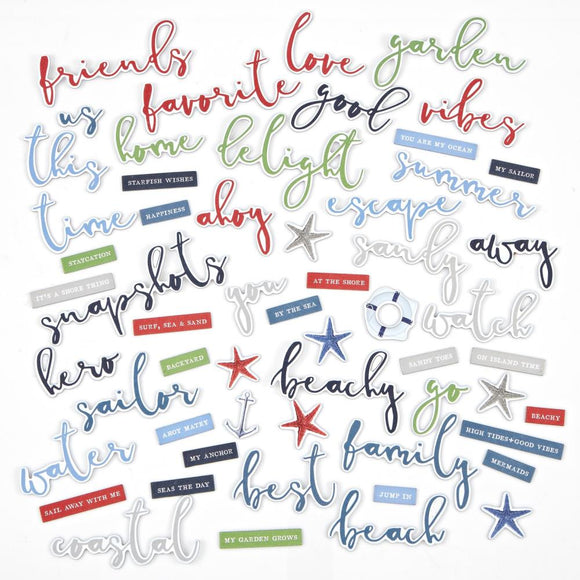 friends
love
garden
favorite
good
vibes
us
this
home
delight
YOU ARE MY OCEAN
MY SAILOR
summer
STARFISH WISHES
time
HAPPINESS
ahoy
escape
sandy
away
STAYCATION
IT'S A SHORE THING
snapshots
you
AT THE SHORE
BY THE SEA
watch
SURF, SEA & SAND
hero
BACKYARD
sailor
beachy
SANDY TOES
ON ISLAND TIME
go
BEACHY
water
AHOY MATEY
MY ANCHOR
family
HIGH TIDES+GOOD VIBES
MERMAIDS
SAIL AWAY WITH ME
SEAS THE DAY
best
JUMP IN
beach
coastal
MY GARDEN GROWS